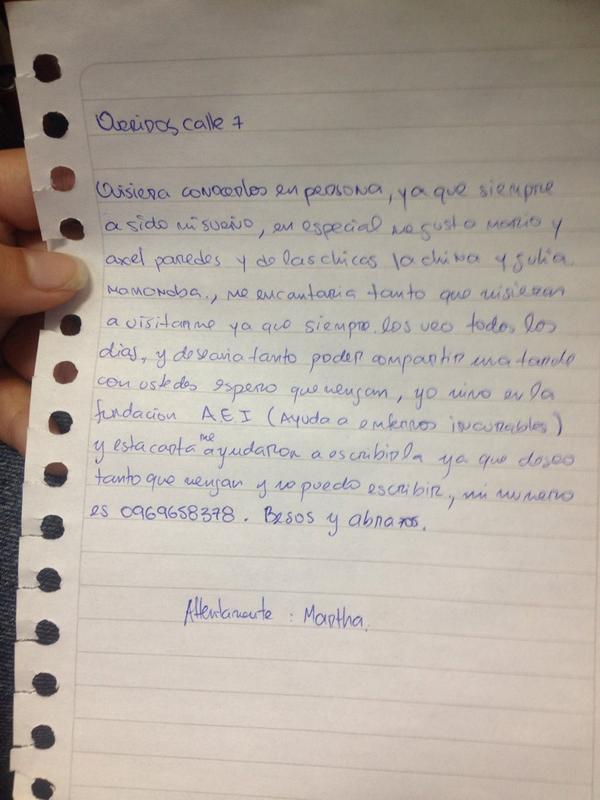 Queridos calle 7
Quisiera conocerlos en persona, ya que siempre
a sido mi sueño, en especial me gusta mario y
axel paredes y de las chicas la china y julia
me encantaria tanto que nisieran
a visitarme ya que siempre los veo todos los
dias, y desearia tanto poder compartir una tarde
con ustedes espero que vengan, yo vivo en la
fundacion A.E.I (Ayuda a enfermos incurables)
y esta carta me ayudaron a escribirla ya que deseo
tanto que vengan y no puedo escribir, mi numero
es 0969658378. Besos y abrazos.
Attentamente : Martha.